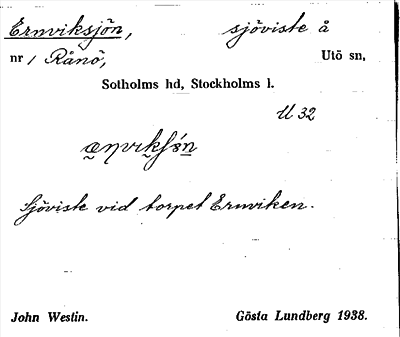 Ernviksjön, sjöviste å
nr 1 Rånö, Utö sn,
Sotholms hd, Stockholms l.
U 32
Sjöviste vid torpet Ernviken.
John Westin. Gösta Lundberg 1938.